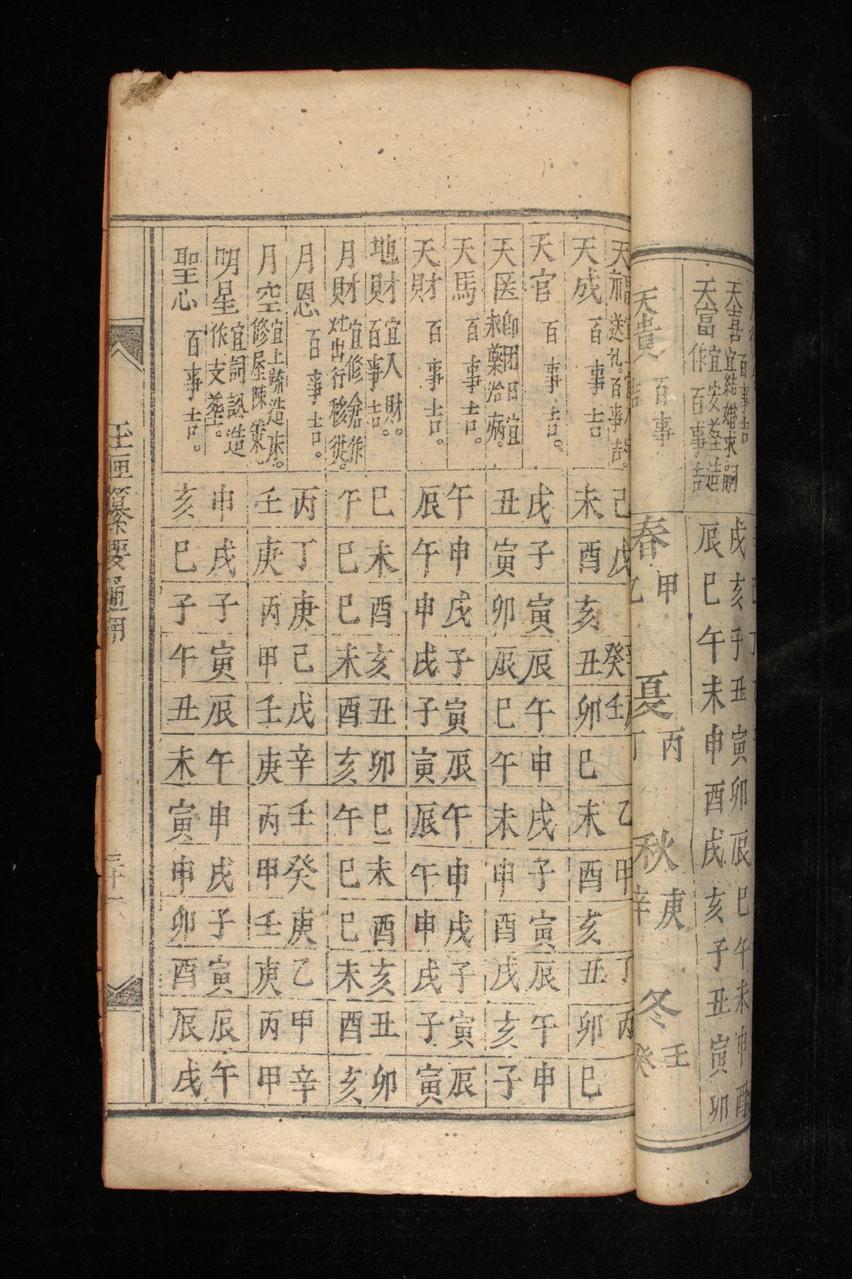 天喜 百事吉 宜結婚求嗣 戌亥子丑寅卯辰巳午未申酉
天富 宜安葬造作百事吉 辰巳午未申酉戌亥子丑寅卯
天貴 百事吉 春 甲乙 夏 丙丁 秋 庚辛 冬 壬癸
天福 送礼 百事吉。 己戊 癸壬 乙甲 丁丙
天成 百事吉 未酉亥丑卯巳未酉亥丑卯巳
天官 百事吉。 戌子寅辰午申戌子寅辰午申
天医 宜求藥治病。 丑寅卯辰巳午未申酉戌亥子
天馬 百事吉。 午申戌子寅辰午申戌子寅辰
天財 百事吉。 辰午申戌子寅辰午申戌子寅
地財 宜入財。百事吉。 巳未酉亥丑卯巳未酉亥丑卯
月財 宜修倉作灶出行移徙。 午巳巳未酉亥午巳巳未酉亥
月恩 百事吉。 丙丁庚己戊辛壬癸庚乙甲辛
月空 宜上䟽造床。修屋陳策 壬庚丙甲壬庚丙甲壬庚丙甲
明星 宜詞訟造作安葬。 申戌子寅辰午申戌子寅辰午
聖心 百事吉。 亥巳子午丑未寅申卯酉辰戌
纂要通用